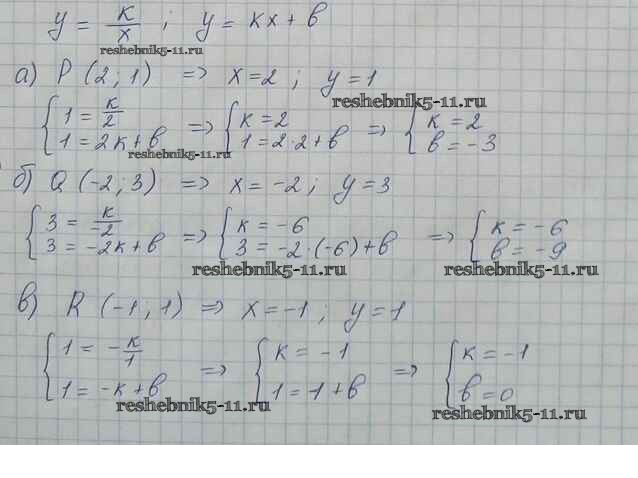 y = к/x ; y = кx + в
reshebnik5-11.ru
а) P (2 ; 1) => x = 2 ; y = 1
reshebnik5-11.ru
{ 1 = к/2 => { к = 2 => { к = 2
1 = 2к + в 1 = 2·2 + в в = -3
reshebnik5-11.ru
б) Q (-2 ; 3) => x = -2 ; y = 3
{ 3 = к/-2 => { к = -6 => { к = -6
3 = -2к + в 3 = -2·(-6) + в в = -9
reshebnik5-11.ru reshebnik5-11.ru
в) R (-1 ; 1) => x = -1 ; y = 1
{ 1 = -к/1 => { к = -1 => { к = -1
1 = -к + в 1 = 1 + в в = 0
reshebnik5-11.ru reshebnik5-11.ru